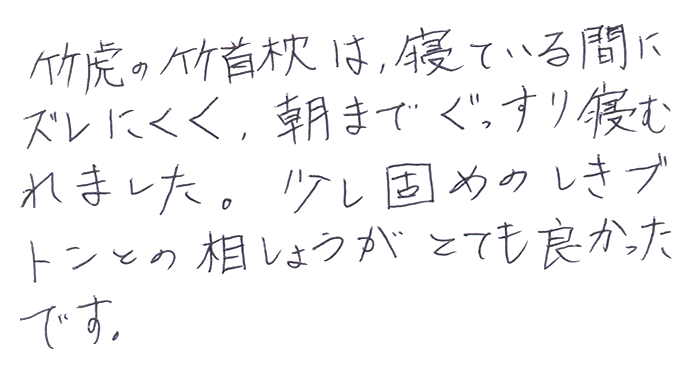 竹虎の竹首枕は、寝ている間に
ズレにくく、朝までぐっすり寝む
れました。少し固めのしきブ
トンとの相しょうがとても良かった
です。